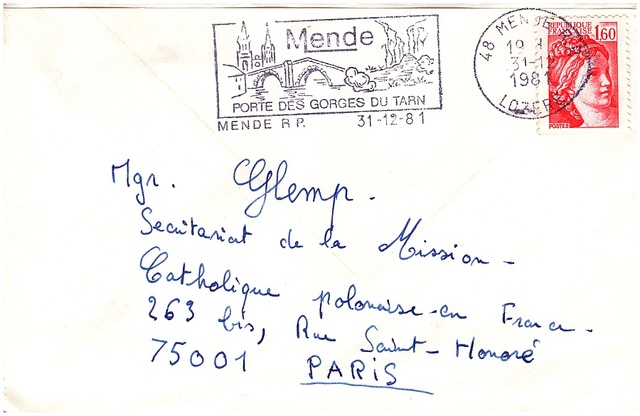 Mende
PORTE DES GORGES DU TARN
MENDE R.P. 31-12-81
48 MENDE R.P.
19 H
31-12
1981
LOZERE
REPUBLIQUE FRANCAISE
1,60
POSTES
Mgr. Glemp.
Secrétariat de la Mission -
Catholique polonaise en France -
263 bis, Rue Saint-Honoré
75001 PARIS